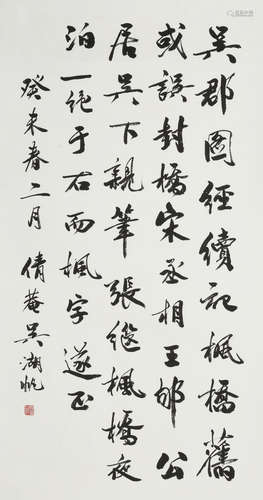 吴郡图经续记枫桥旧
或误封桥宋丞相王郇公
居吴下亲笔张继枫桥夜
泊一绝于右而枫字遂正
癸未春二月 倩菴吴湖帆